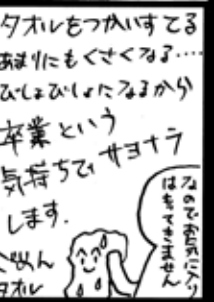 タオルをつかいすてる
あまりにもくさくなる・・・・
びしょびしょになるから
卒業という
気持ちで サヨナラ
します.
なのでお気に入り
はもってきません
ごめん
タオル